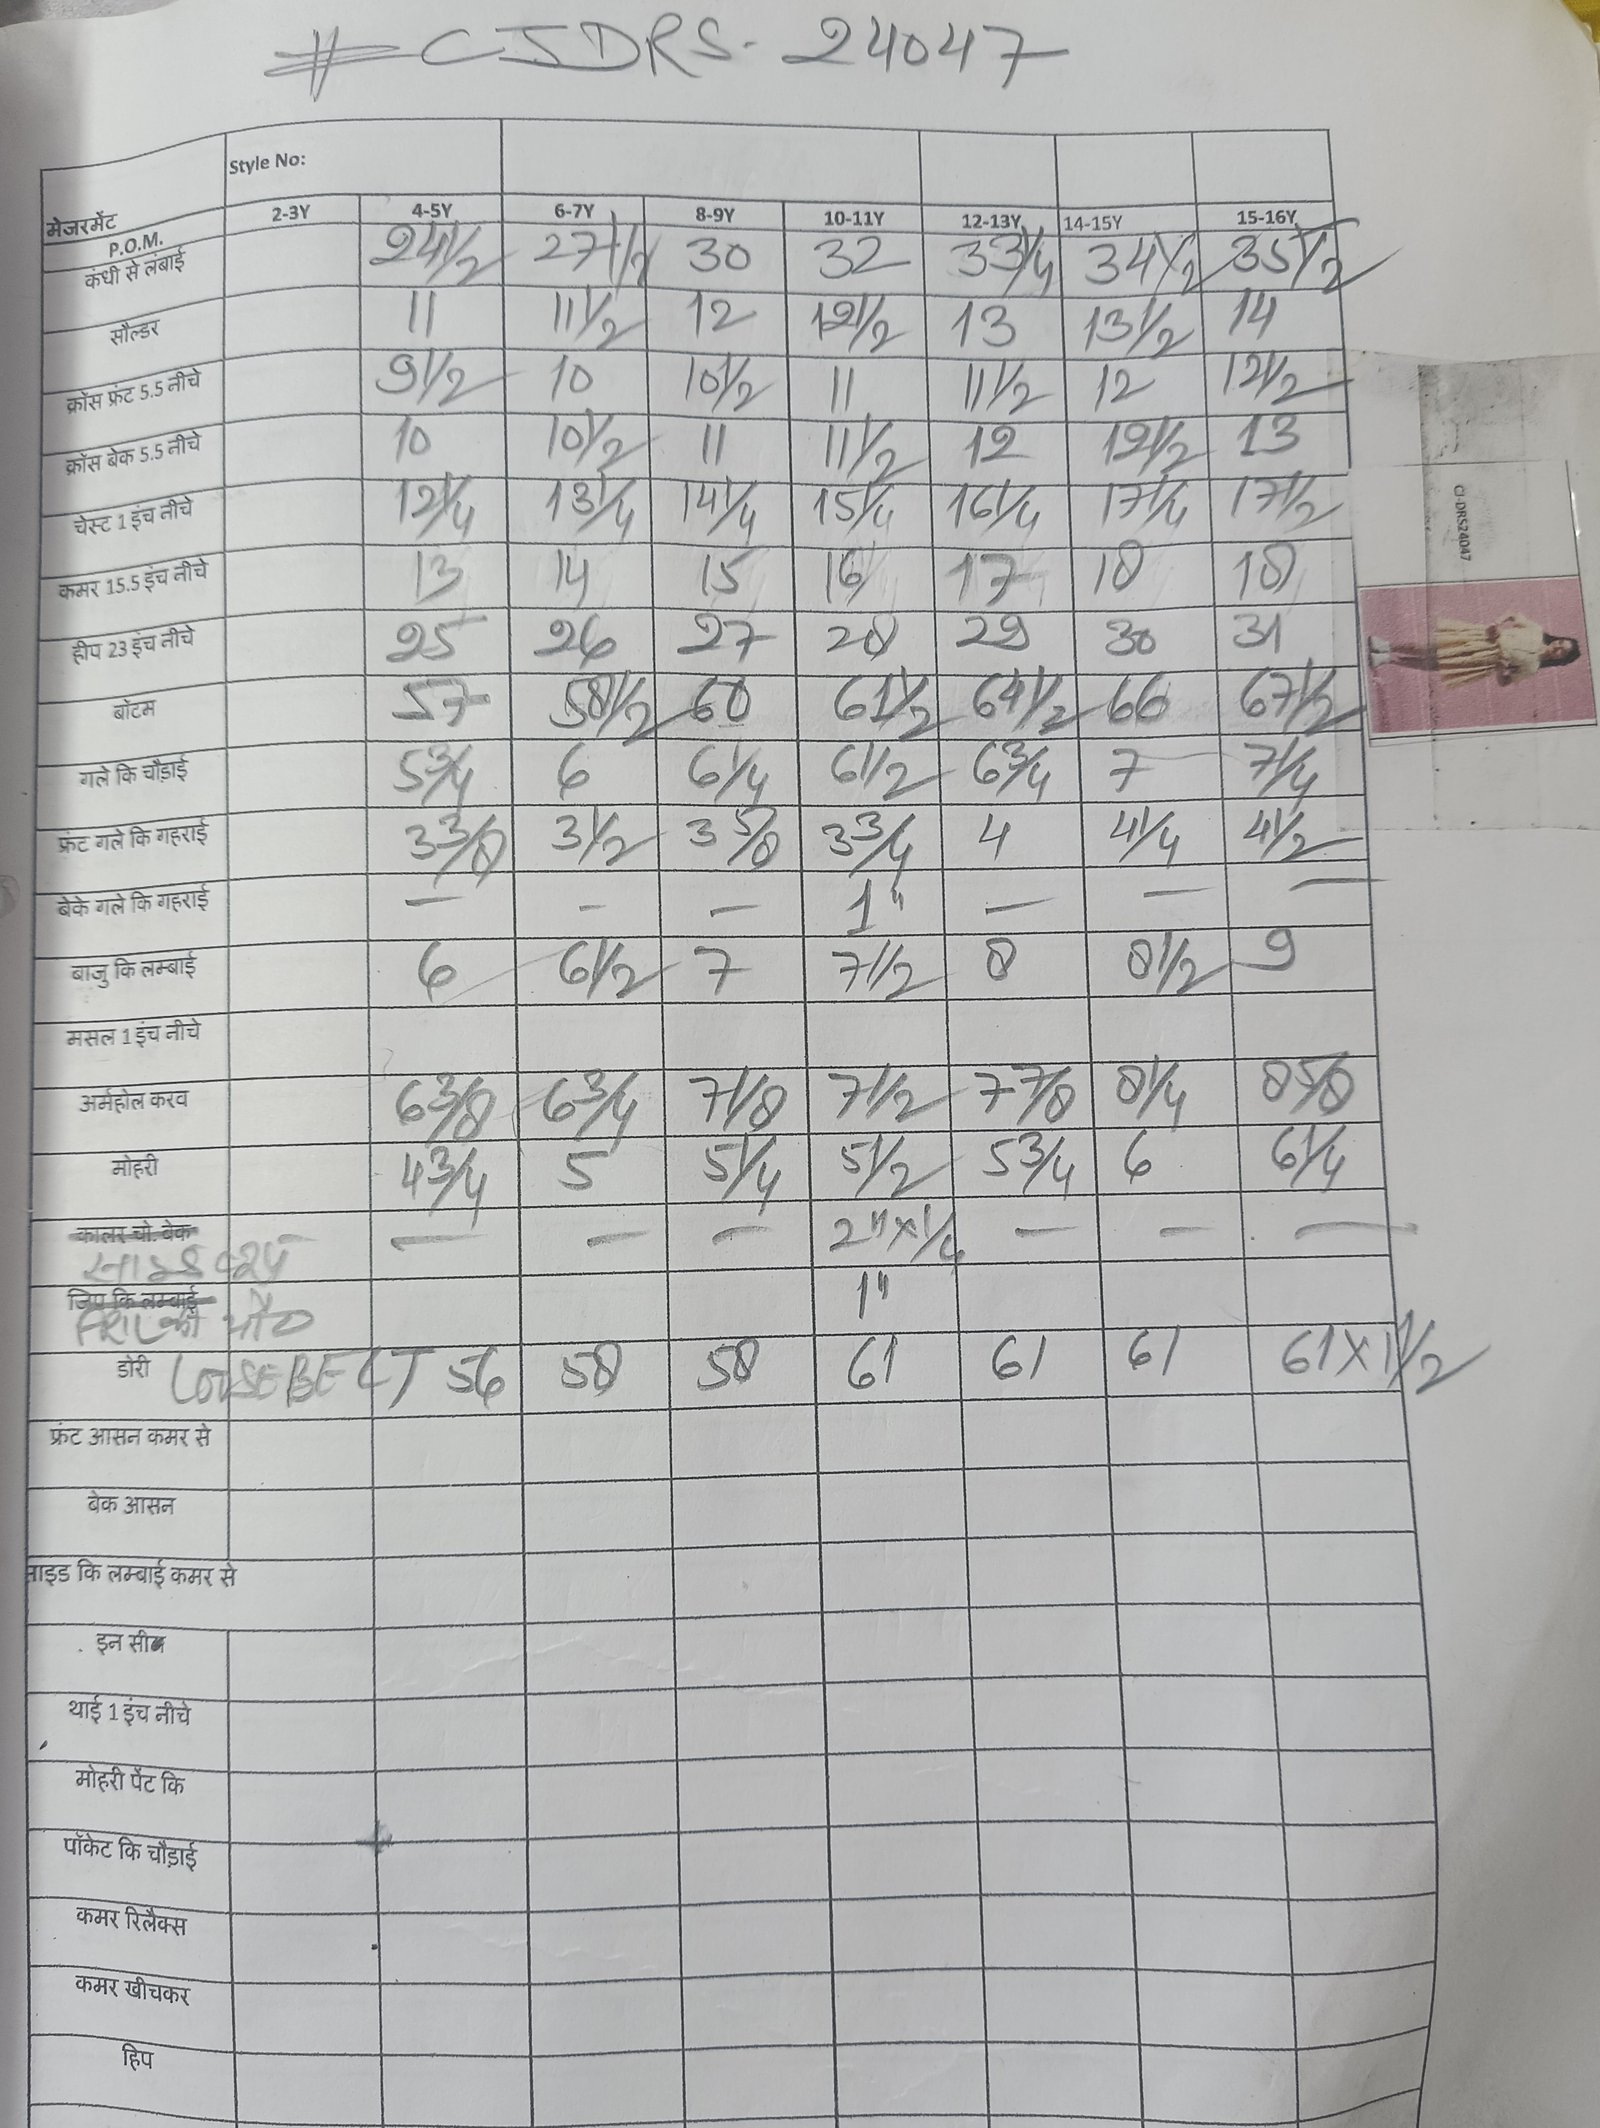 # CJDRS- 24047
Style No:
मेजरमेंट 2-3Y 4-5Y 6-7Y 8-9Y 10-11Y 12-13Y 14-15Y 15-16Y
P.O.M.
कंधी से लंबाई 24 1/2 27 1/2 30 32 33 1/4 34 1/2 35 1/2
सौल्डर 11 11 1/2 12 12 1/2 13 13 1/2 14
क्रॉस फ्रंट 5.5 नीचे 9 1/2 10 10 1/2 11 11 1/2 12 12 1/2
क्रॉस बेक 5.5 नीचे 10 10 1/2 11 11 1/2 12 12 1/2 13
चेस्ट 1 इंच नीचे 12 1/4 13 1/4 14 1/4 15 1/4 16 1/4 17 1/4 17 1/2
कमर 15.5 इंच नीचे 13 14 15 16 17 18 18
हीप 23 इंच नीचे 25 26 27 28 29 30 31
बॉटम 57 58 1/2 60 61 1/2 64 1/2 66 67 1/2
गले कि चौड़ाई 5 3/4 6 6 1/4 6 1/2 6 3/4 7 7 1/4
फ्रंट गले कि गहराई 3 3/8 3 1/2 3 5/8 3 3/4 4 4 1/4 4 1/2
बेके गले कि गहराई — — — 1" — — —
बाजु कि लम्बाई 6 6 1/2 7 7 1/2 8 8 1/2 9
मसल 1 इंच नीचे
अर्महोल करव 6 3/8 6 3/4 7 1/8 7 1/2 7 7/8 8 1/4 8 5/8
मोहरी 4 3/4 5 5 1/4 5 1/2 5 3/4 6 6 1/4
कालर चो. बेक — — — 2"x1/4 — — —
जिप कि लम्बाई 1"
डोरी LOOSE BELT 56 58 58 61 61 61 61x1 1/2
फ्रंट आसन कमर से
बेक आसन
साइड कि लम्बाई कमर से
इन सीम
थाई 1 इंच नीचे
मोहरी पेंट कि
पॉकेट कि चौड़ाई
कमर रिलैक्स
कमर खीचकर
हिप
CI-DRS24047